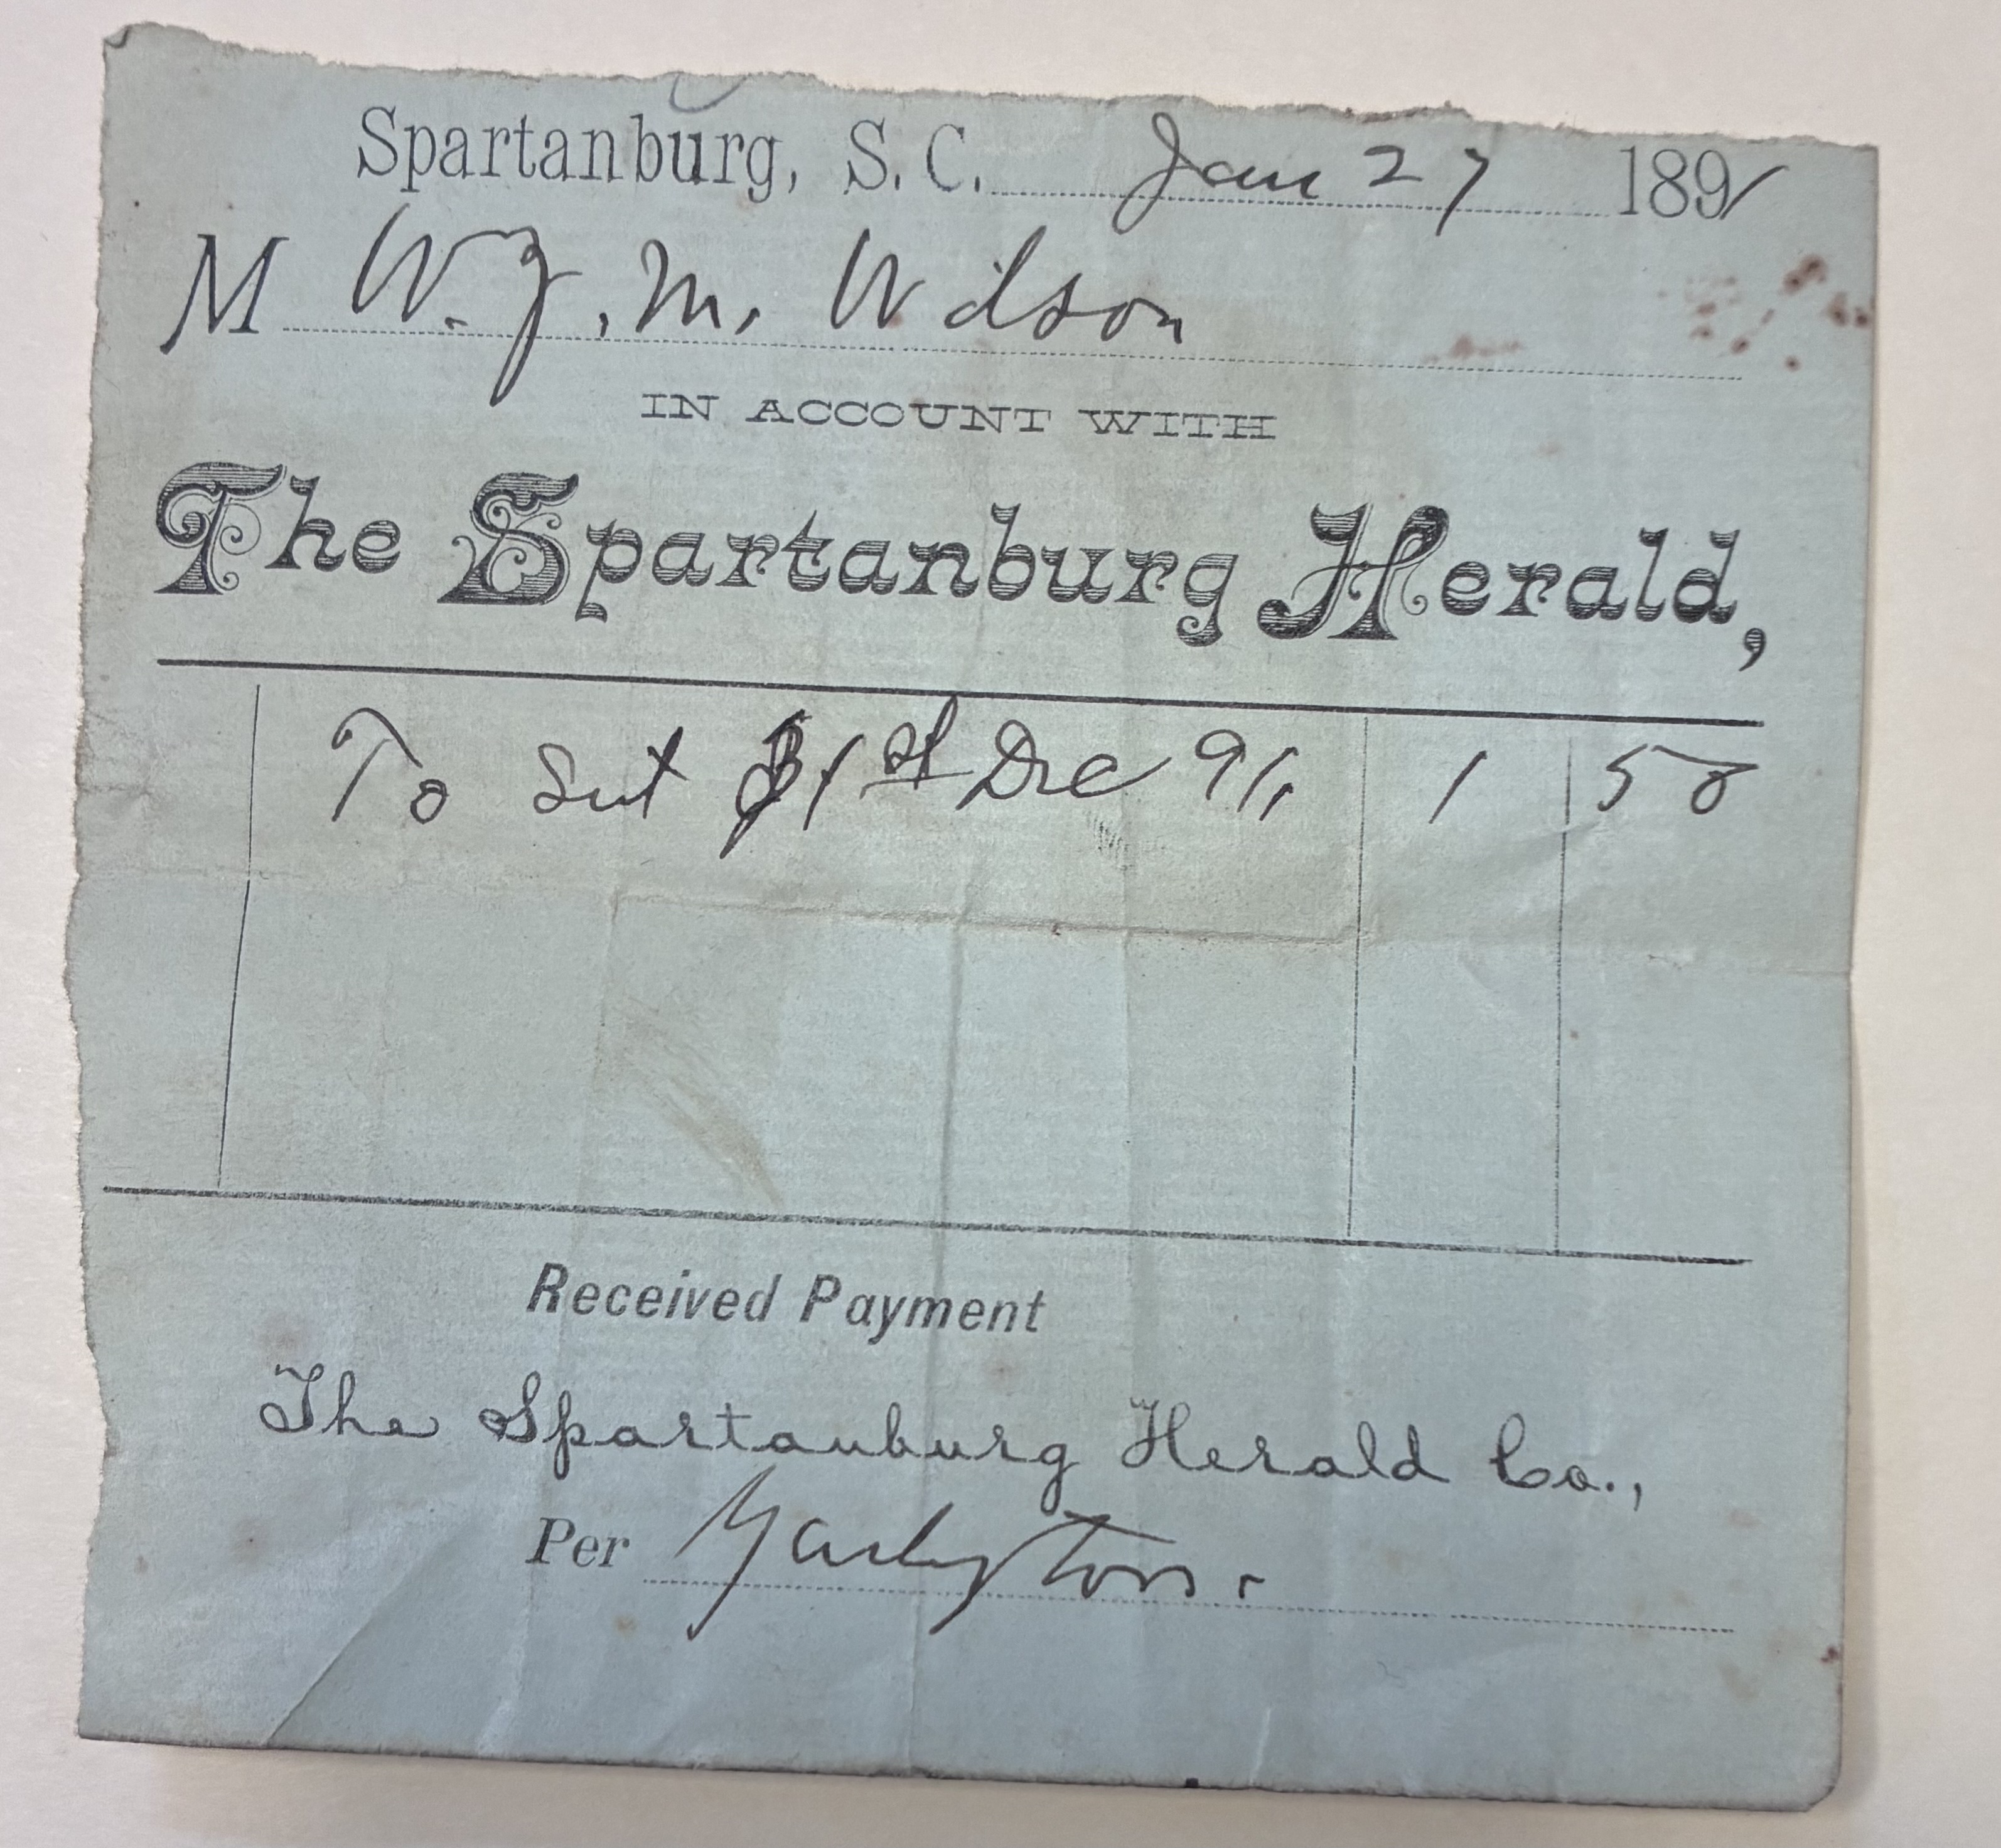 Spartanburg, S. C. Jan 27 1891
M W. J. M. Wilson
IN ACCOUNT WITH
The Spartanburg Herald,
To Sut 31st Dec 91, 1 50
Received Payment
The Spartanburg Herald Co.,
Per